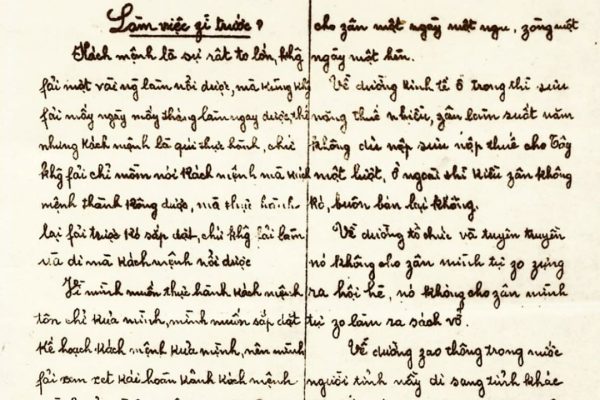 Làm việc zì trước?
Kách mệnh là sự rất to lớn, khg̃
fải một vài ng̃ làm nổi được, mà kũng khg̃
fải mấy ngày mấy tháng làm ngay được, thế
nhưng kách mệnh là qúi thực hành, chứ
khg̃ fải chỉ mồm nói Kách mệnh mà kách
mệnh thành kông được, mà thực hành
lại fải trước kó sắp đặt, chứ khg̃ fải làm
và đi mà kách mệnh nổi được
Vì mình muốn thực hành kách mệnh
tôn chỉ kủa mình, mình muốn sắp đặt
kế hoạch kách mệnh kủa mình, nên mình
fải xem xét kái hoàn kảnh kách mệnh
cho zân một ngày một ngu, zòng một
ngày một hèn.
Về đường kinh tế ở trong thì sưu
nặng thuế nhiều, zân làm suốt năm
không đủ nộp sưu nộp thuế cho Tây
một lượt, ở ngoài thì kiều zân không
kó, buôn bán lại không.
Về đường tổ chức và tuyên truyền
nó không cho zân mình tự zo zựng
ra hội hè, nó không cho zân mình
tự zo làm ra sách vở.
Về đường zao thông trong nước
người tỉnh nầy đi sang tỉnh khác